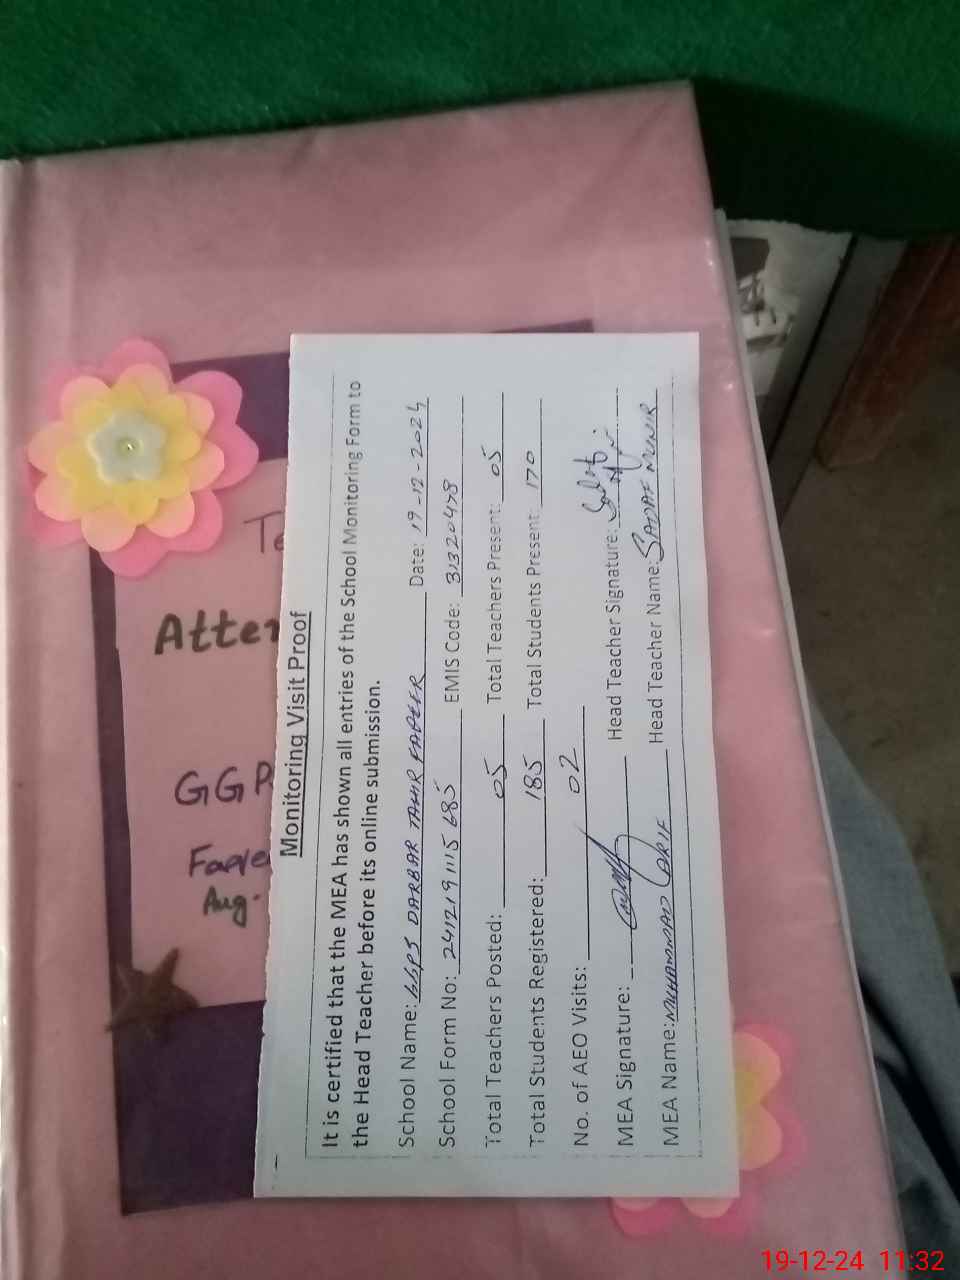 Te
Atten
GGP
Faqee
Aug-
Monitoring Visit Proof
It is certified that the MEA has shown all entries of the School Monitoring Form to
the Head Teacher before its online submission.
School Name: GGPS DARBAR TAHIR FAQEER Date: 19-12-2024
School Form No: 2412191115685 EMIS Code: 31320478
Total Teachers Posted: 05 Total Teachers Present: 05
Total Students Registered: 185 Total Students Present: 170
No. of AEO Visits: 02
MEA Signature: Head Teacher Signature:
MEA Name: MUHAMMAD ARIF Head Teacher Name: SADAF MUNIR
19-12-24 11:32